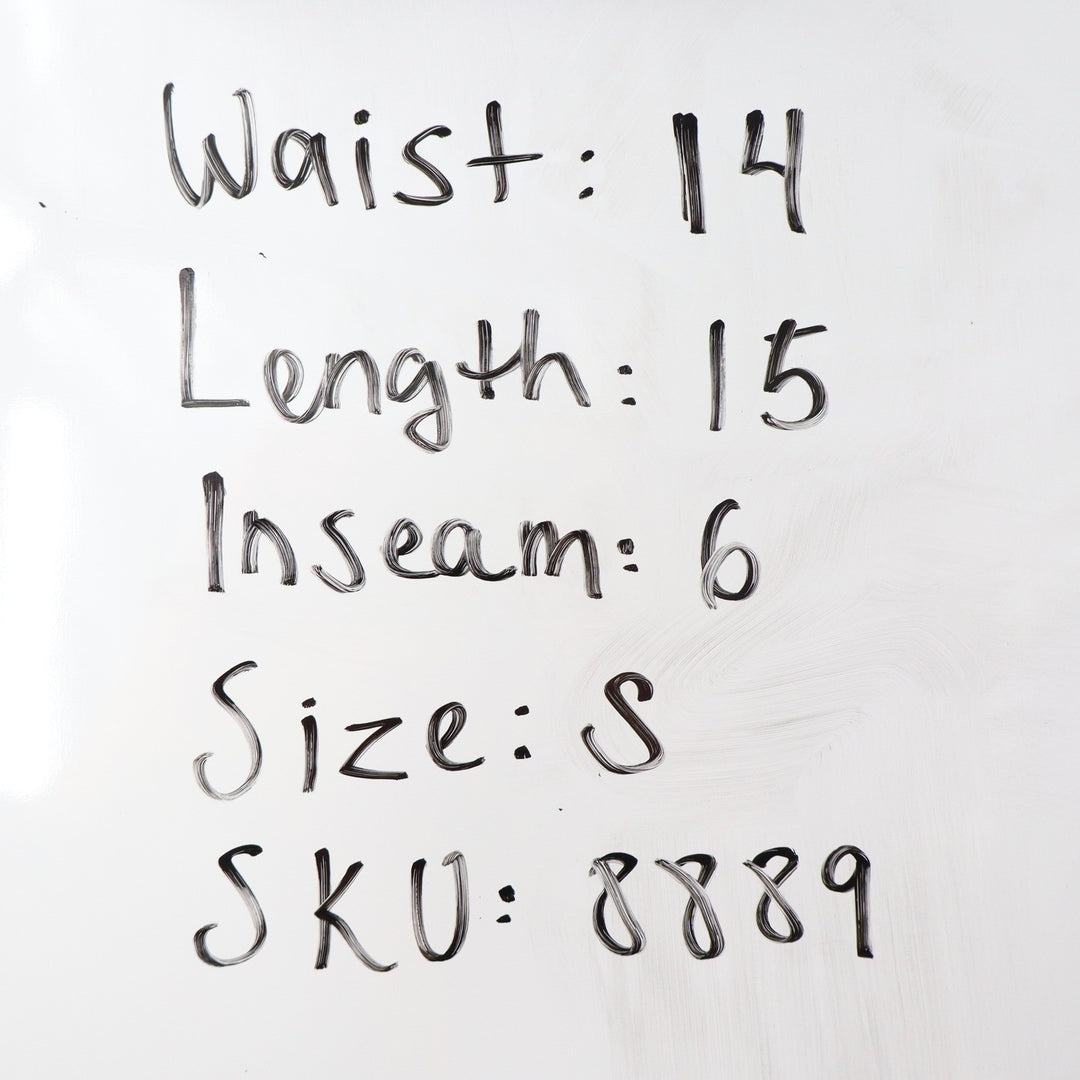 Waist: 14
Length: 15
Inseam: 6
Size: S
SKU: 8889